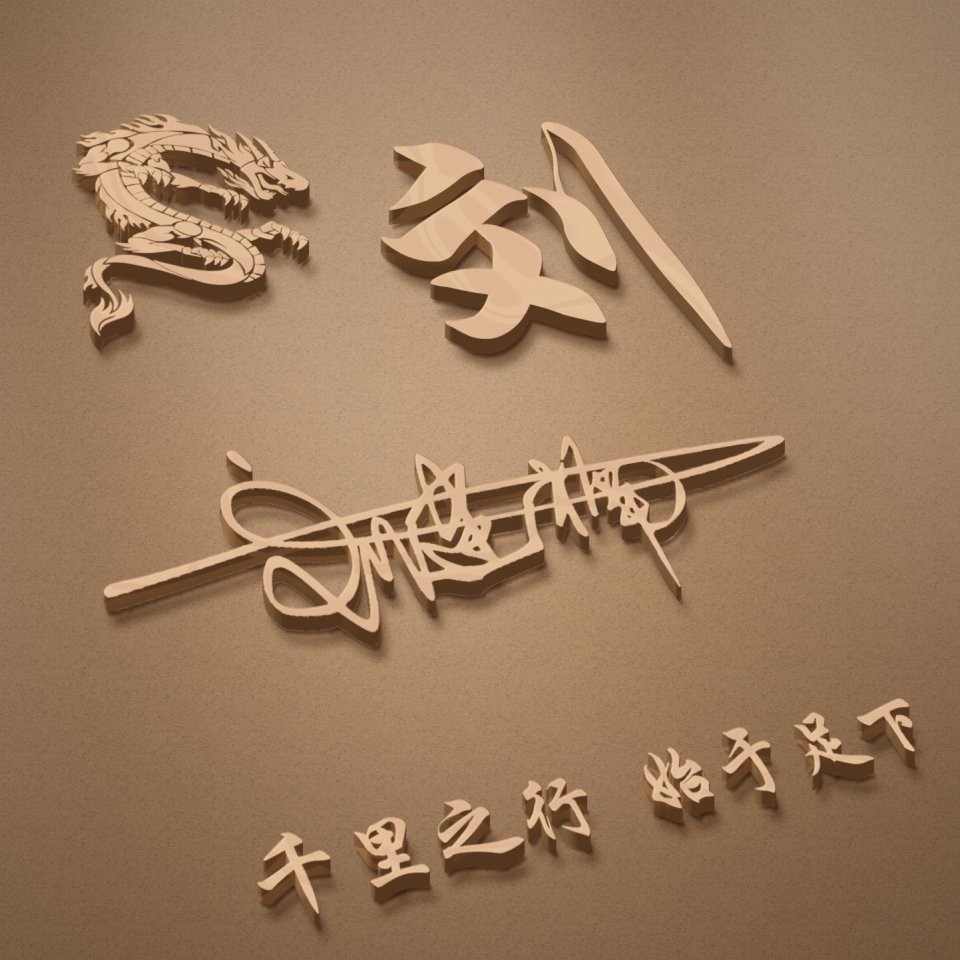 刘
千里之行 始于足下